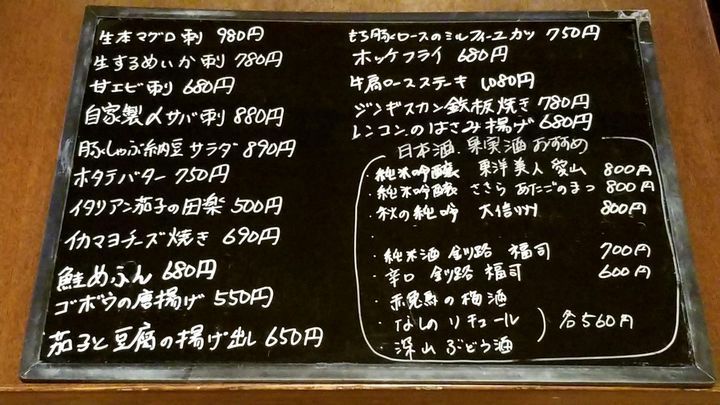 生本マグロ刺 980円
生するめいか刺 780円
甘エビ刺 680円
自家製〆サバ刺 880円
豚しゃぶ納豆サラダ 890円
ホタテバター 750円
イタリアン茄子の田楽 500円
イカマヨチーズ焼き 690円
鮭めふん 680円
ゴボウの唐揚げ 550円
茄子と豆腐の揚げ出し 650円
もち豚ロースのミルフィーユカツ 750円
ホッケフライ 680円
牛肩ロースステーキ 1,080円
ジンギスカン鉄板焼き 780円
レンコンのはさみ揚げ 680円
日本酒、果実酒おすすめ
・純米吟醸 東洋美人 愛山 800円
・純米吟醸 ささら あたごのまつ 800円
・秋の純吟 大信州 800円
・純米酒 釧路 福司 700円
・辛口 釧路 福司 600円
・赤兎馬の梅酒
・なしのリキュール 各560円
・深山ぶどう酒